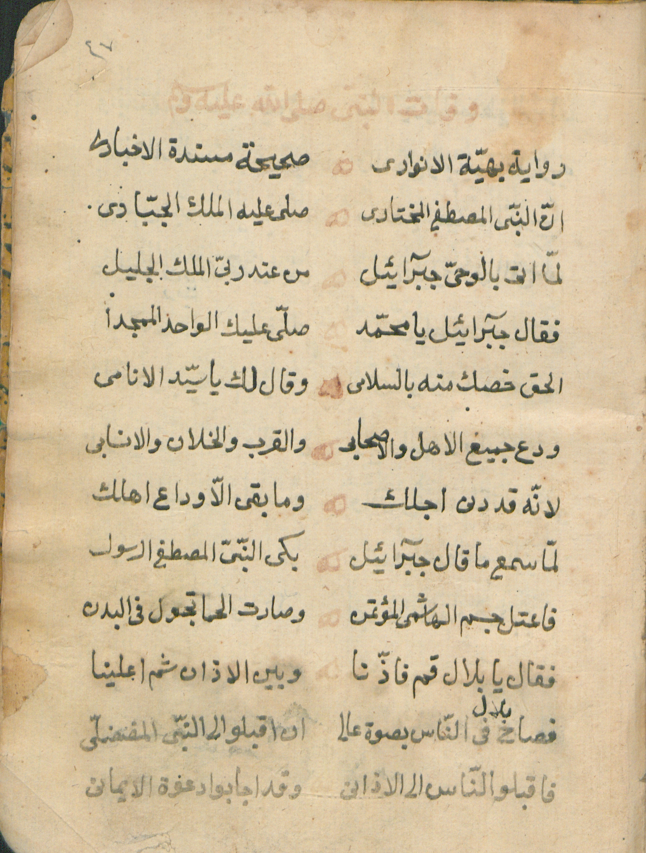 ٤٧
وفات النبي صلى الله عليه وم
رواية بهيّة الانوارى صحيحة مسندة الاخبارى
انّ النبّى المصطفى المختارى صلى عليه الملك الجبّارى
لمّا اتى بالوحىّ جبرآئيل من عند ربىّ الملك الجليل
فقال جبرآئيل يا محمّد صلّى عليك الواحد الممجدا
الحق خصك منه بالسلامى وقال لك يا سيّد الانامى
ودع جميع الاهل والاصحابى والقرب والخلان والانسابى
لانّه قد دنى اجلك وما بقى الّا وداع اهلك
لمّا سمع ما قال جبرآئيل بكى النّبىّ المصطفى الرسول
فاعتل جسم الهاشمى المؤتمن وصارت الحما تجول فى البدن
فقال يا بلال قم فاذّنا وبين الاذان ثم اعلينا
فصاح بلال فى النّاس بصوة عالى ان اقبلو الى النّبى المفضلّى
فاقبلو النّاس الى الاذانى وقد اجابوا دعوة الايمانى